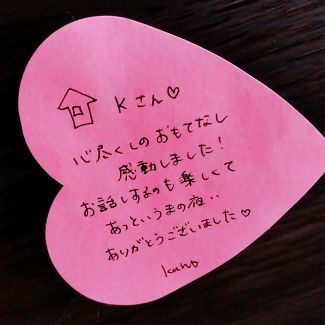 Kさん♡
心尽くしのおもてなし
感動しました！
お話しするのも楽しくて
あっというまの夜‥
ありがとうございました♡
kaho